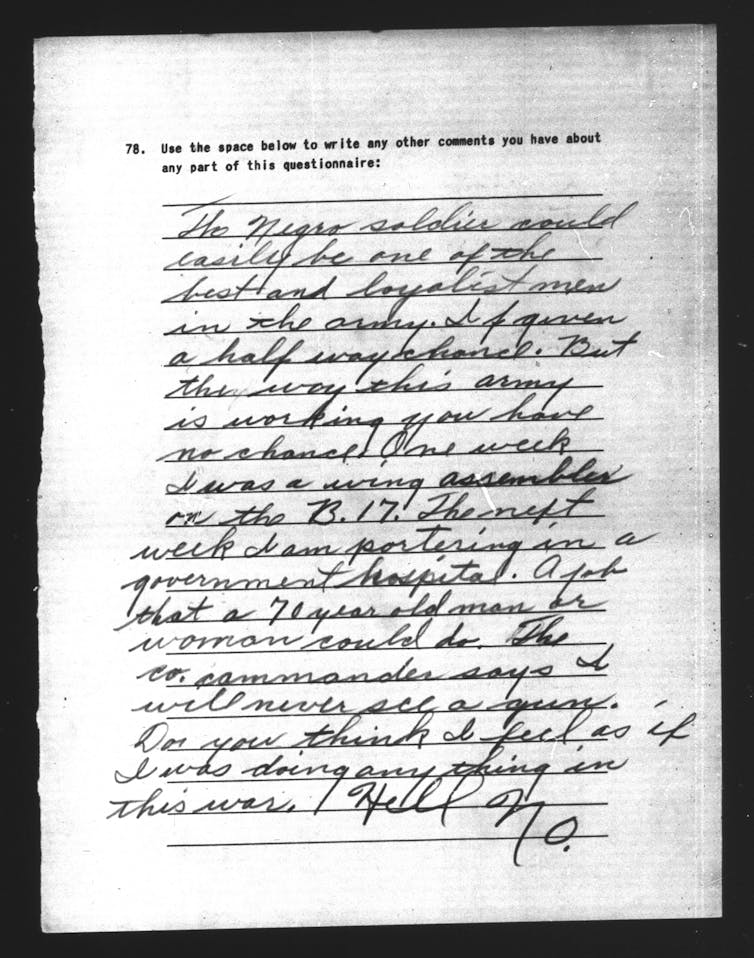 78. Use the space below to write any other comments you have about
any part of this questionnaire:
The Negro soldier could
easily be one of the
best and loyalist men
in the army. If given
a half way chance. But
the way this army
is working you have
no chance. One week
I was a wing assembler
on the B.17. The next
week I am portering in a
government hospital. A job
that a 70 year old man or
woman could do. The
co. commander says I
will never see a gun.
Do you think I feel as if
I was doing any thing in
this war. Hell No.